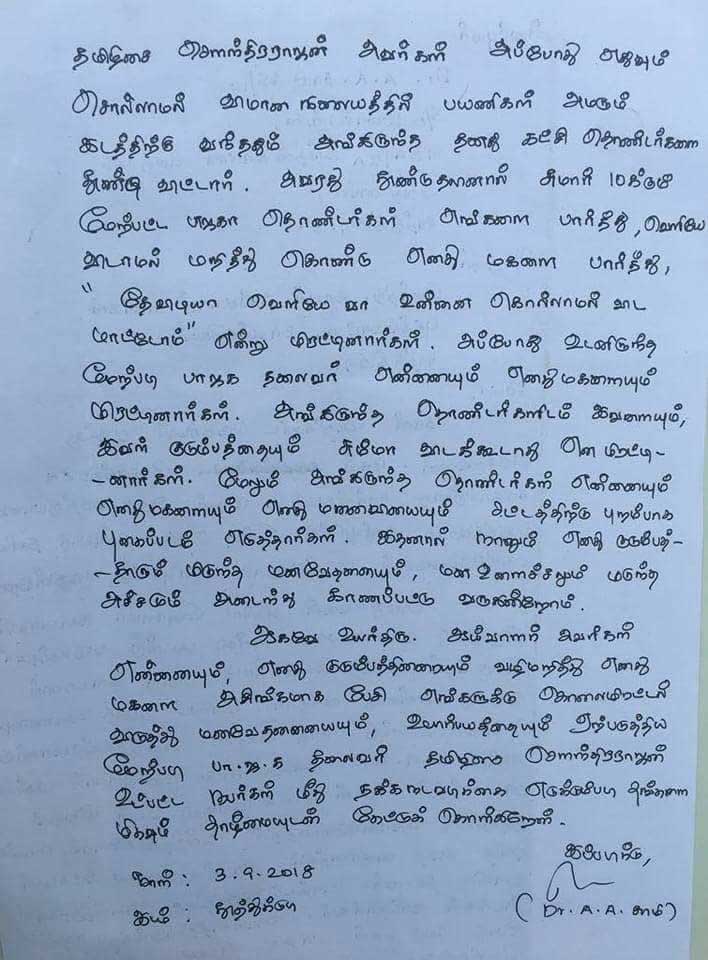 தமிழிசை சௌந்திரராஜன் அவர்கள் அப்போது எதுவும்
சொல்லாமல் விமான நிலையத்தில் பயணிகள் அமரும்
இடத்திற்கு வந்ததும் அங்கிருந்த தனது கட்சி தொண்டர்களை
தூண்டி விட்டார். அவரது தூண்டுதலினால் சுமார் 10க்கும்
மேற்பட்ட பாஜக தொண்டர்கள் எங்களை பார்த்து, வெளியே
விடாமல் மறித்து கொண்டு எனது மகளை பார்த்து,
"தேவடியா வெளியே வா உன்னை கொல்லாமல் விட
மாட்டோம்" என்று மிரட்டினார்கள். அப்போது உடனிருந்த
மேற்படி பாஜக தலைவர் என்னையும் எனது மகளையும்
மிரட்டினார்கள். அங்கிருந்த தொண்டர்களிடம் இவளையும்,
இவள் குடும்பத்தையும் சும்மா விடக்கூடாது என மிரட்டி-
-னார்கள். மேலும் அங்கிருந்த தொண்டர்கள் என்னையும்
எனது மகளையும் எனது மனைவியையும் சட்டத்திற்கு புறம்பாக
புகைப்படம் எடுத்தார்கள். இதனால் நானும் எனது குடும்பத்-
-தாரும் மிகுந்த மனவேதனையும், மன உளைச்சலும் மிகுந்த
அச்சமும் அடைந்து காணப்பட்டு வருகின்றோம்.
ஆகவே உயர்திரு. ஆய்வாளர் அவர்கள்
என்னையும், எனது குடும்பத்தினரையும் வழிமறித்து எனது
மகளை அசிங்கமாக பேசி எங்களுக்கு கொலைமிரட்டல்
விடுத்து மனவேதனையையும், உயிர்பயத்தையும் ஏற்படுத்திய
மேற்படி பா.ஜ.க தலைவர் தமிழிசை சௌந்திரராஜன்
உட்பட்ட நபர்கள் மீது தக்க நடவடிக்கை எடுக்கும்படி தங்களை
மிகவும் தாழ்மையுடன் கேட்டுக் கொள்கிறேன்.
இப்படிக்கு,
நாள் : 3.9.2018
இடம் : தூத்துக்குடி
(Dr. A.A. சாமி)